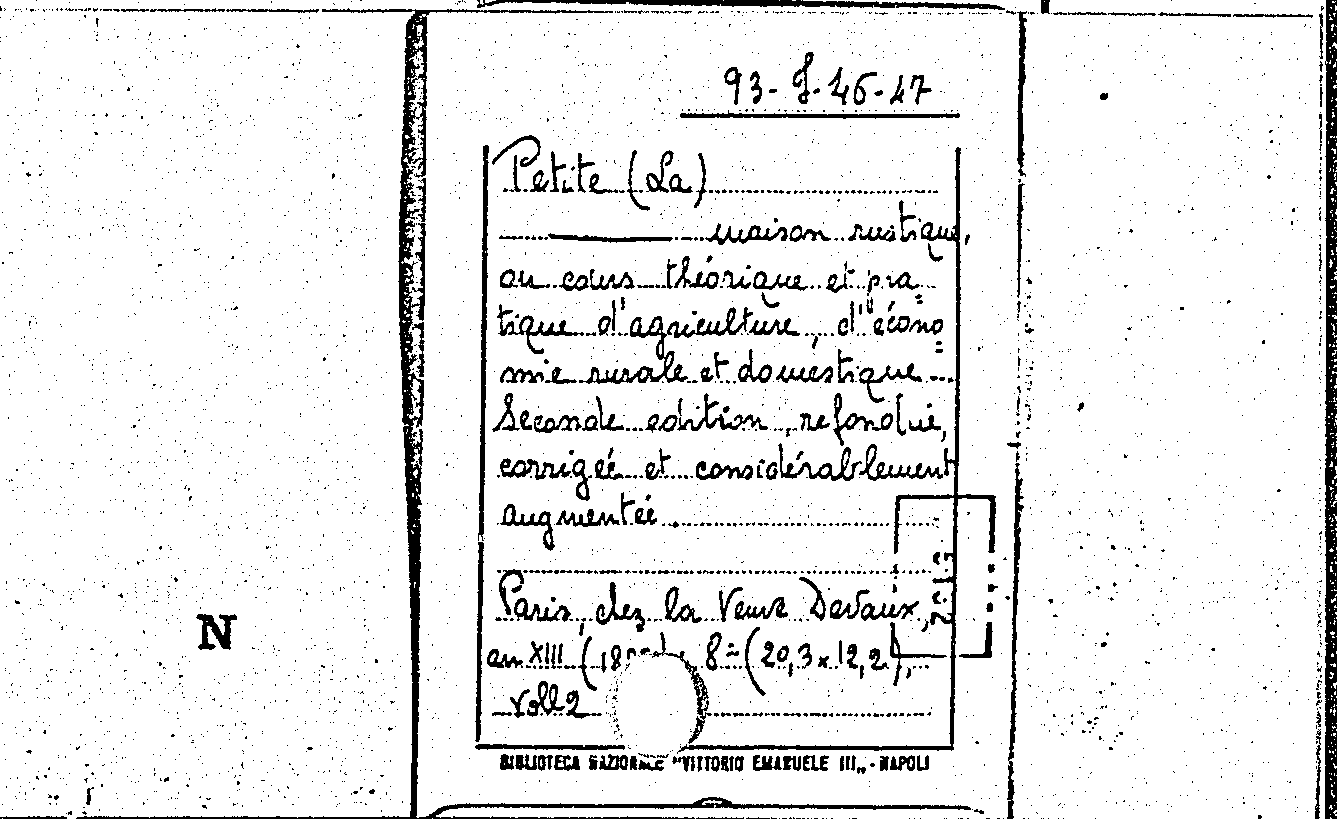 93-J-46-47
Petite (La)
——— maison rustique,
ou cours théorique et pra=
tique d'agriculture, d'écono=
mie rurale et domestique...
Seconde edition, refondue,
corrigée et considérablement
augmentée.
Paris, chez la Veuve Devaux,
an XIII ( 8° (20,3x12,2),
voll 2
N
BIBLIOTECA NAZIONALE "VITTORIO EMANUELE III„ - NAPOLI